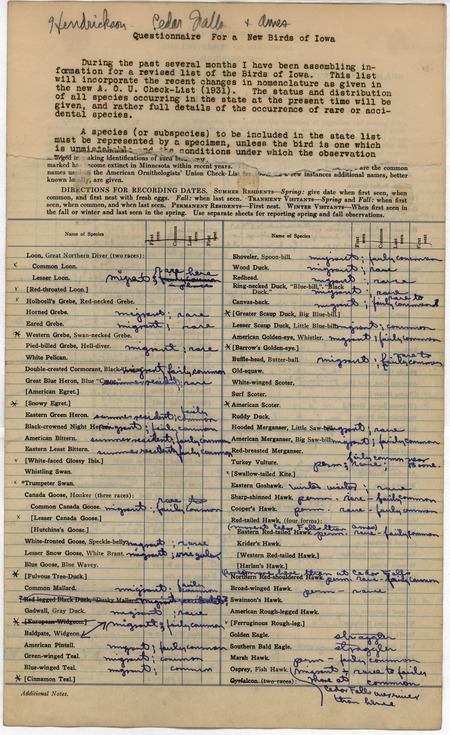 Hendrickson - Cedar Falls & Ames
Questionnaire For a New Birds of Iowa
During the past several months I have been assembling in-
formation for a revised list of the Birds of Iowa. This list
will incorporate the recent changes in nomenclature as given in
the new A. O. U. Check-List (1931). The status and distribution
of all species occurring in the state at the present time will be
given, and rather full details of the occurrence of rare or acci-
dental species.
A species (or subspecies) to be included in the state list
must be represented by a specimen, unless the bird is one which
is unmistakable and the conditions under which the observation
making identifications of such
marked have become extinct in Minnesota within recent years. are the common
names used in the American Ornithologists' Union Check-List few instances additional names, better
known locally, are given.
DIRECTIONS FOR RECORDING DATES. SUMMER RESIDENTS—Spring: give date when first seen, when
common, and first nest with fresh eggs. Fall: when last seen. TRANSIENT VISITANTS—Spring and Fall: when first
seen, when common, and when last seen. PERMANENT RESIDENTS—First nest. WINTER VISITANTS—When first seen in
the fall or winter and last seen in the spring. Use separate sheets for reporting spring and fall observations.
Name of Species First seen Common Last seen
Loon, Great Northern Diver (two races):
Common Loon.
Lesser Loon. migrant; rare here
x [Red-throated Loon.]
x Holboell's Grebe, Red-necked Grebe.
Horned Grebe. migrant; rare
Eared Grebe. migrant; rare
x Western Grebe, Swan-necked Grebe.
Pied-billed Grebe, Hell-diver. migrant; rare
White Pelican.
Double-crested Cormorant, Black migrant; fairly common
Great Blue Heron, Blue "Crane" summer resident; rare
[American Egret.]
x [Snowy Egret.]
Eastern Green Heron. summer resident; fairly common
Black-crowned Night Heron. migrant; fairly common
American Bittern. summer resident; fairly common
Eastern Least Bittern. summer resident; fairly common
x [White-faced Glossy Ibis.]
Whistling Swan.
x *Trumpeter Swan.
Canada Goose, Honker (three races):
Common Canada Goose. migrant; rare to fairly common
x [Lesser Canada Goose.]
[Hutchins's Goose.]
White-fronted Goose, Speckle-belly migrant; rare
Lesser Snow Goose, White Brant. migrant; irregular
Blue Goose, Blue Wavey.
x [Fulvous Tree-Duck.]
Common Mallard. migrant; fairly common
Red-legged Black Duck, "Dusky Mallard"
Gadwall, Gray Duck. migrant; rare
x [European Widgeon.]
Baldpate, Widgeon. migrant; fairly common
American Pintail. migrant; fairly common
Green-winged Teal. migrant; common
Blue-winged Teal. migrant; common
x [Cinnamon Teal.]
Additional Notes.
Name of Species First seen Common Last seen
Shoveler, Spoon-bill. migrant; fairly common
Wood Duck. migrant; rare
Redhead. migrant; rare
Ring-necked Duck, "Blue-bill," "Black Duck." migrant; rare
Canvas-back. migrant; rare to fairly common
x [Greater Scaup Duck, Big Blue-bill.]
Lesser Scaup Duck, Little Blue-bill migrant; common
American Golden-eye, Whistler. migrant; fairly common
x [Barrow's Golden-eye.]
Buffle-head, Butter-ball. migrant; rare to fairly common
Old-squaw.
White-winged Scoter.
Surf Scoter.
x American Scoter.
Ruddy Duck.
Hooded Merganser, Little Saw-bill migrant; rare
American Merganser, Big Saw-bill migrant; fairly common
Red-breasted Merganser.
Turkey Vulture. perm; rare; fairly common near
x [Swallow-tailed Kite.]
Eastern Goshawk. winter visitor; rare
Sharp-shinned Hawk. perm. rare - fairly common
Cooper's Hawk. perm. rare - fairly common
Red-tailed Hawk (four forms):
(more at Cedar Falls than Ames)
Eastern Red-tailed Hawk. perm. rare - fairly common
Krider's Hawk.
[Western Red-tailed Hawk.]
[Harlan's Hawk.]
than at Cedar Falls
Northern Red-shouldered Hawk. perm rare - fairly common
Broad-winged Hawk. perm - rare
Swainson's Hawk.
American Rough-legged Hawk.
[Ferruginous Rough-leg.]
Golden Eagle. straggler
Southern Bald Eagle. straggler
Marsh Hawk. perm - fairly common
Osprey, Fish Hawk. (migrant - rare to fairly common
Gyrfalcon (two races): more at
Cedar Falls
than here